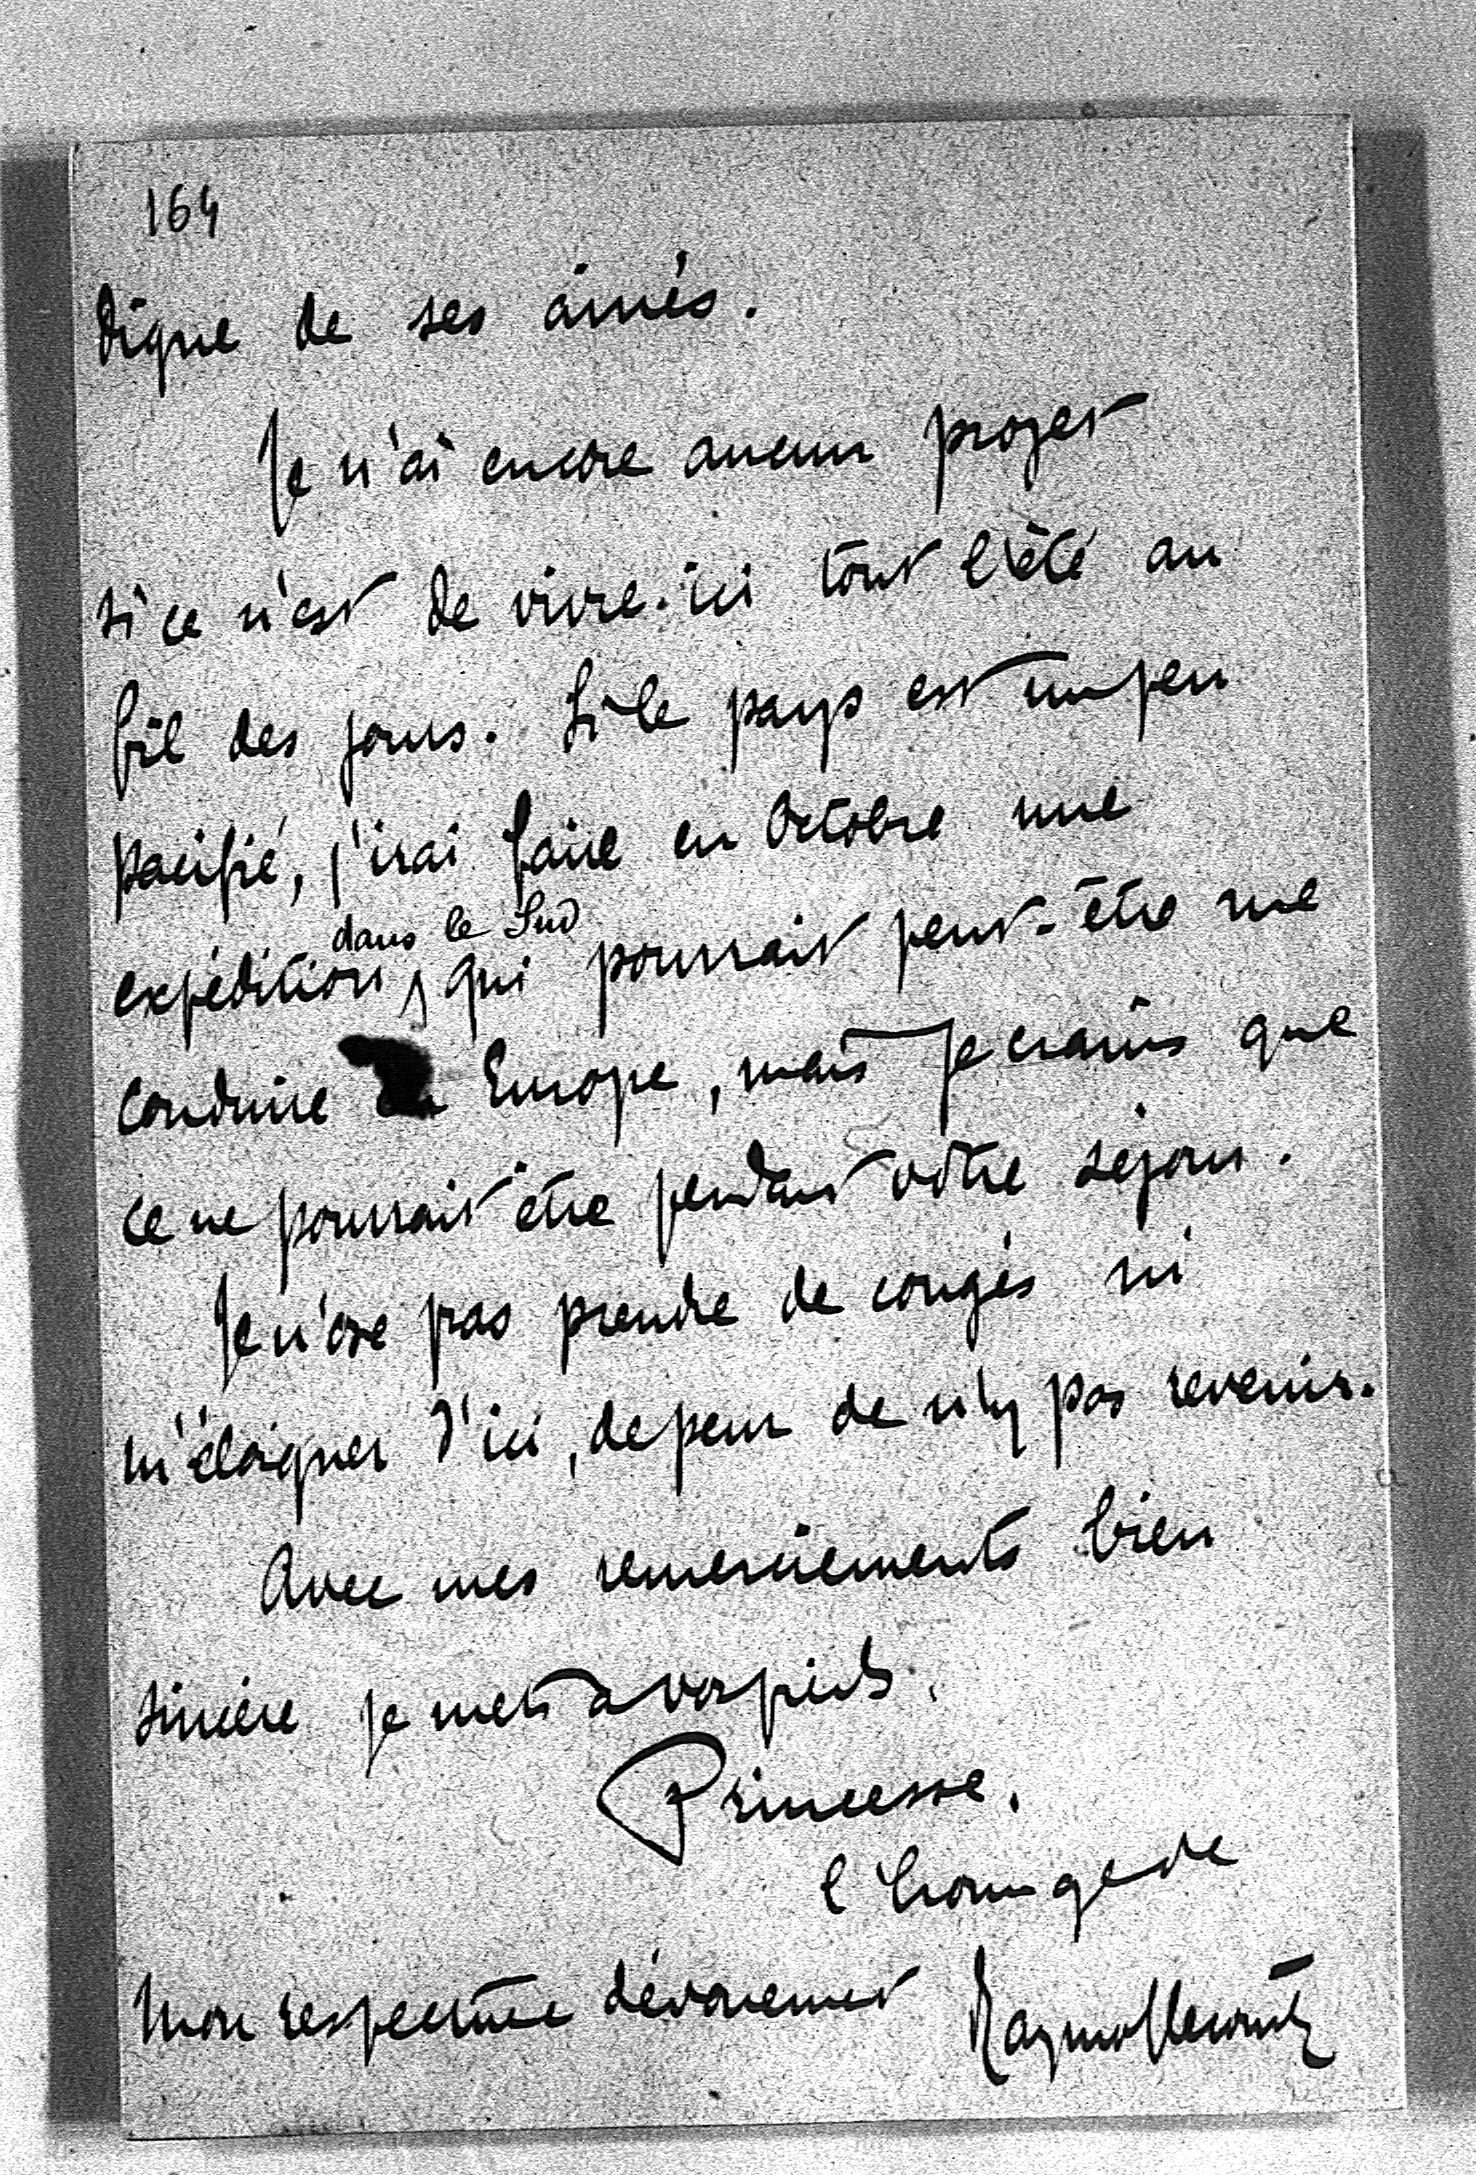 164
digne de ses aînés.
Je n'ai encore aucun projet
si ce n'est de vivre ici tout l'été au
fil des jours. Si le pays est un peu
pacifié, j'irai faire en Octobre une
dans le Sud
expédition, qui pourrait peut-être me
conduire en Europe, mais je crains que
ce ne pourrait être pendant votre séjour.
Je n'ose pas prendre de congés ni
m'éloigner d'ici, de peur de n'y pas revenir.
Avec mes remerciements bien
sincère je mets à vos pieds,
Princesse,
l'homage de
mon respectueux dévouement